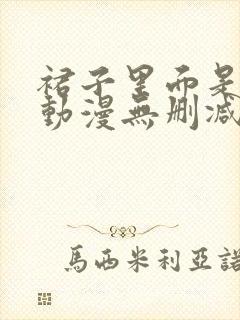 裙子里面是
動漫無删减
馬西米利亞諾